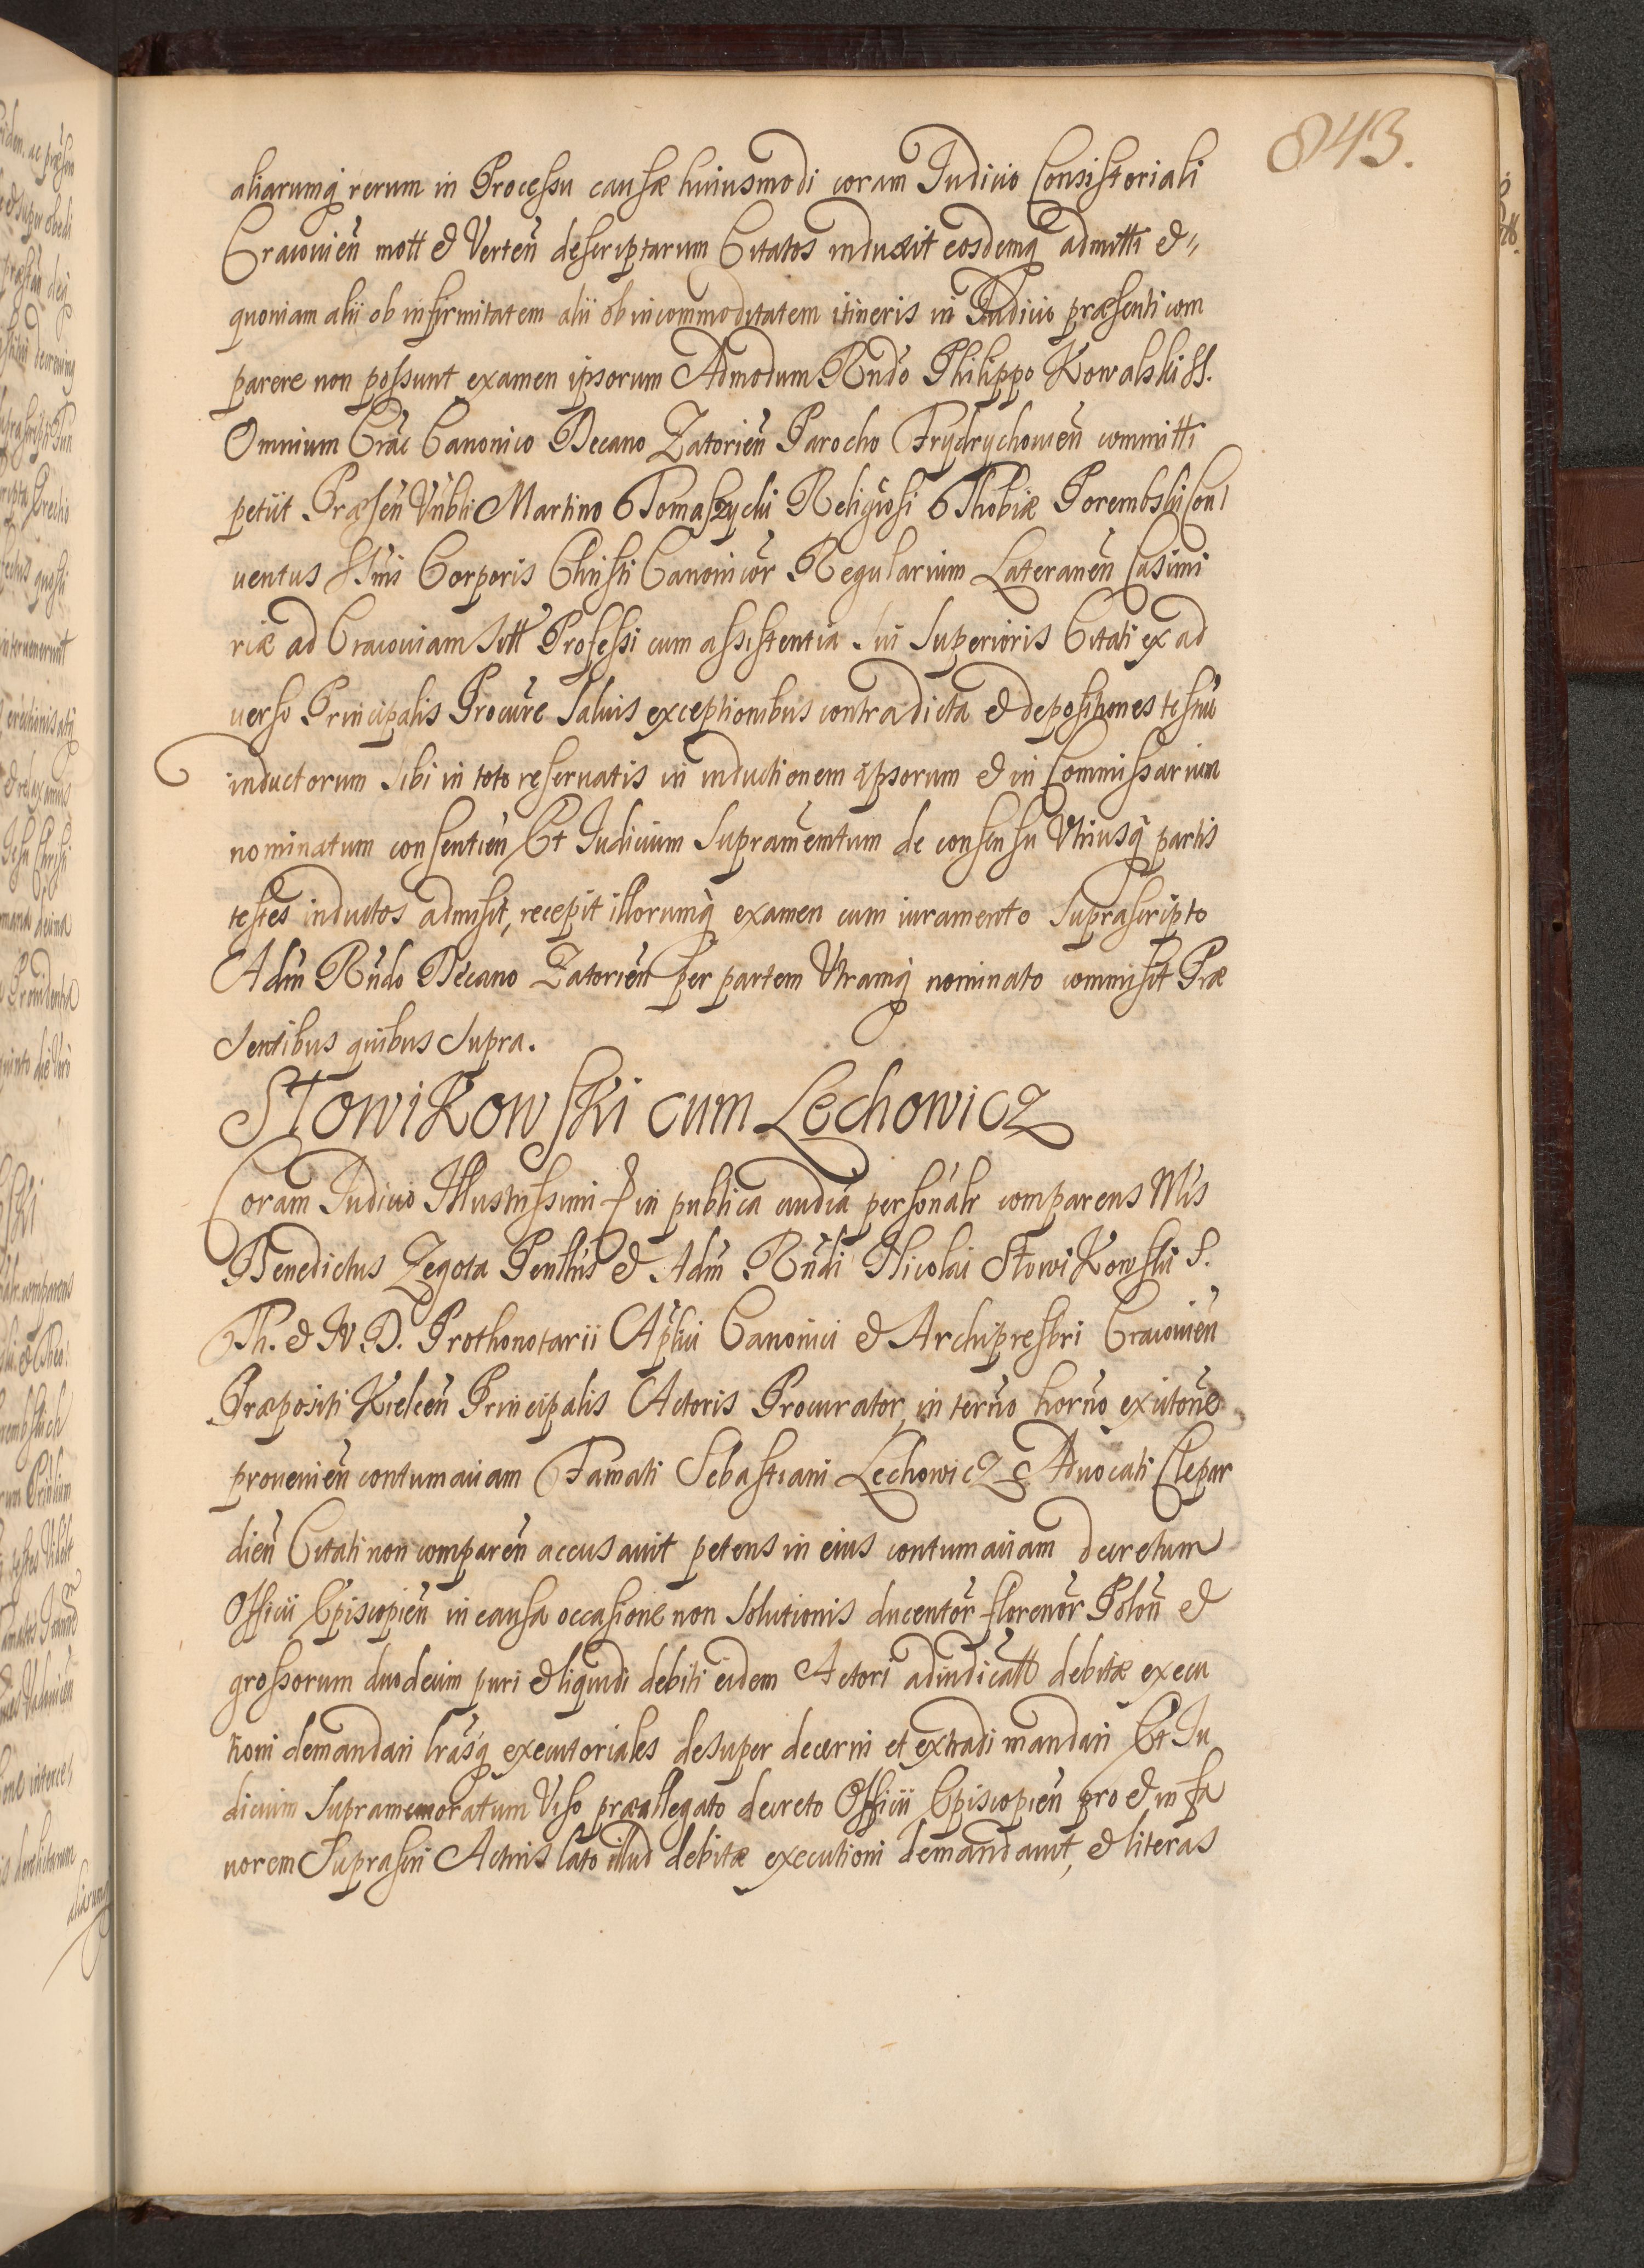 843.
aliarumq rerum in Processu causæ huiusmodi coram Iudicio Consistoriali
Cracouien̄ mott & Verten̄ descriptarum Citatos induxit eosdemq admitti &
quoniam alii ob infirmitatem alii ob incommoditatem itineris in Iudicio præsenti com
parere non possunt examen ipsorum Admodum Rndo Philippo Kowalski SS.
Omnium Crac Canonico Decano Zatorien̄ Parocho Frydrychouien̄ committi
petiit Præsen̄ Vnbli Martino Tomaszycki Religiosi Thobiæ Porembski Con
uentus SSmi Corporis Christi Canonicor Regularium Lateranen̄ Casimi
riæ ad Cracouiam sitt Professi cum assistentia sui Superioris Citati ex ad
uerso Principalis Procure saluis exceptionibus contra dicta & depositiones testiū
inductorum sibi in toto reseruatis in inductionem ipsorum & in Commissarium
nominatum consentien̄ Et Iudicium supramemtum de consensu Vtriusq partis
testes inductos admisit, recepit illorumq examen cum iuramento suprascripto
Adm Rndo Decano Zatorien̄ per partem Vtramq nominato commisit Præ
sentibus quibus supra.
Słowikowski cum Lechowicz
Coram Iudicio Illustrissimi & in publica audia personalr comparens Mis
Benedictus Zegota Penlhis & Adm Rndi Nicolai Słowikowski S.
Th. & IV. D. Prothonotarii Aplici Canonici & Archipresbri Cracouien̄
Præpositi Kielcen̄ Principalis Actoris Procurator in terno horno exutone
prouenien̄ contumaciam Famati Sebastiani Lechowicz Aduocati Clepar
dien̄ Citati non comparen̄ accusauit petens in eius contumaciam decretum
Officii Episcopien̄ in causa occasione non solutionis ducentor florenor Polon̄ &
grossorum duodecim puri & liquidi debiti eidem Actori adiudicatt debitæ execu
tioni demandari lrasq executoriales desuper decerni et extradi mandari Et Iu
dicium supramemoratum Viso præallegato decreto Officii Episcopien̄ pro & in fa
uorem suprascri Actoris lato illud debitæ executioni demandauit, & literas